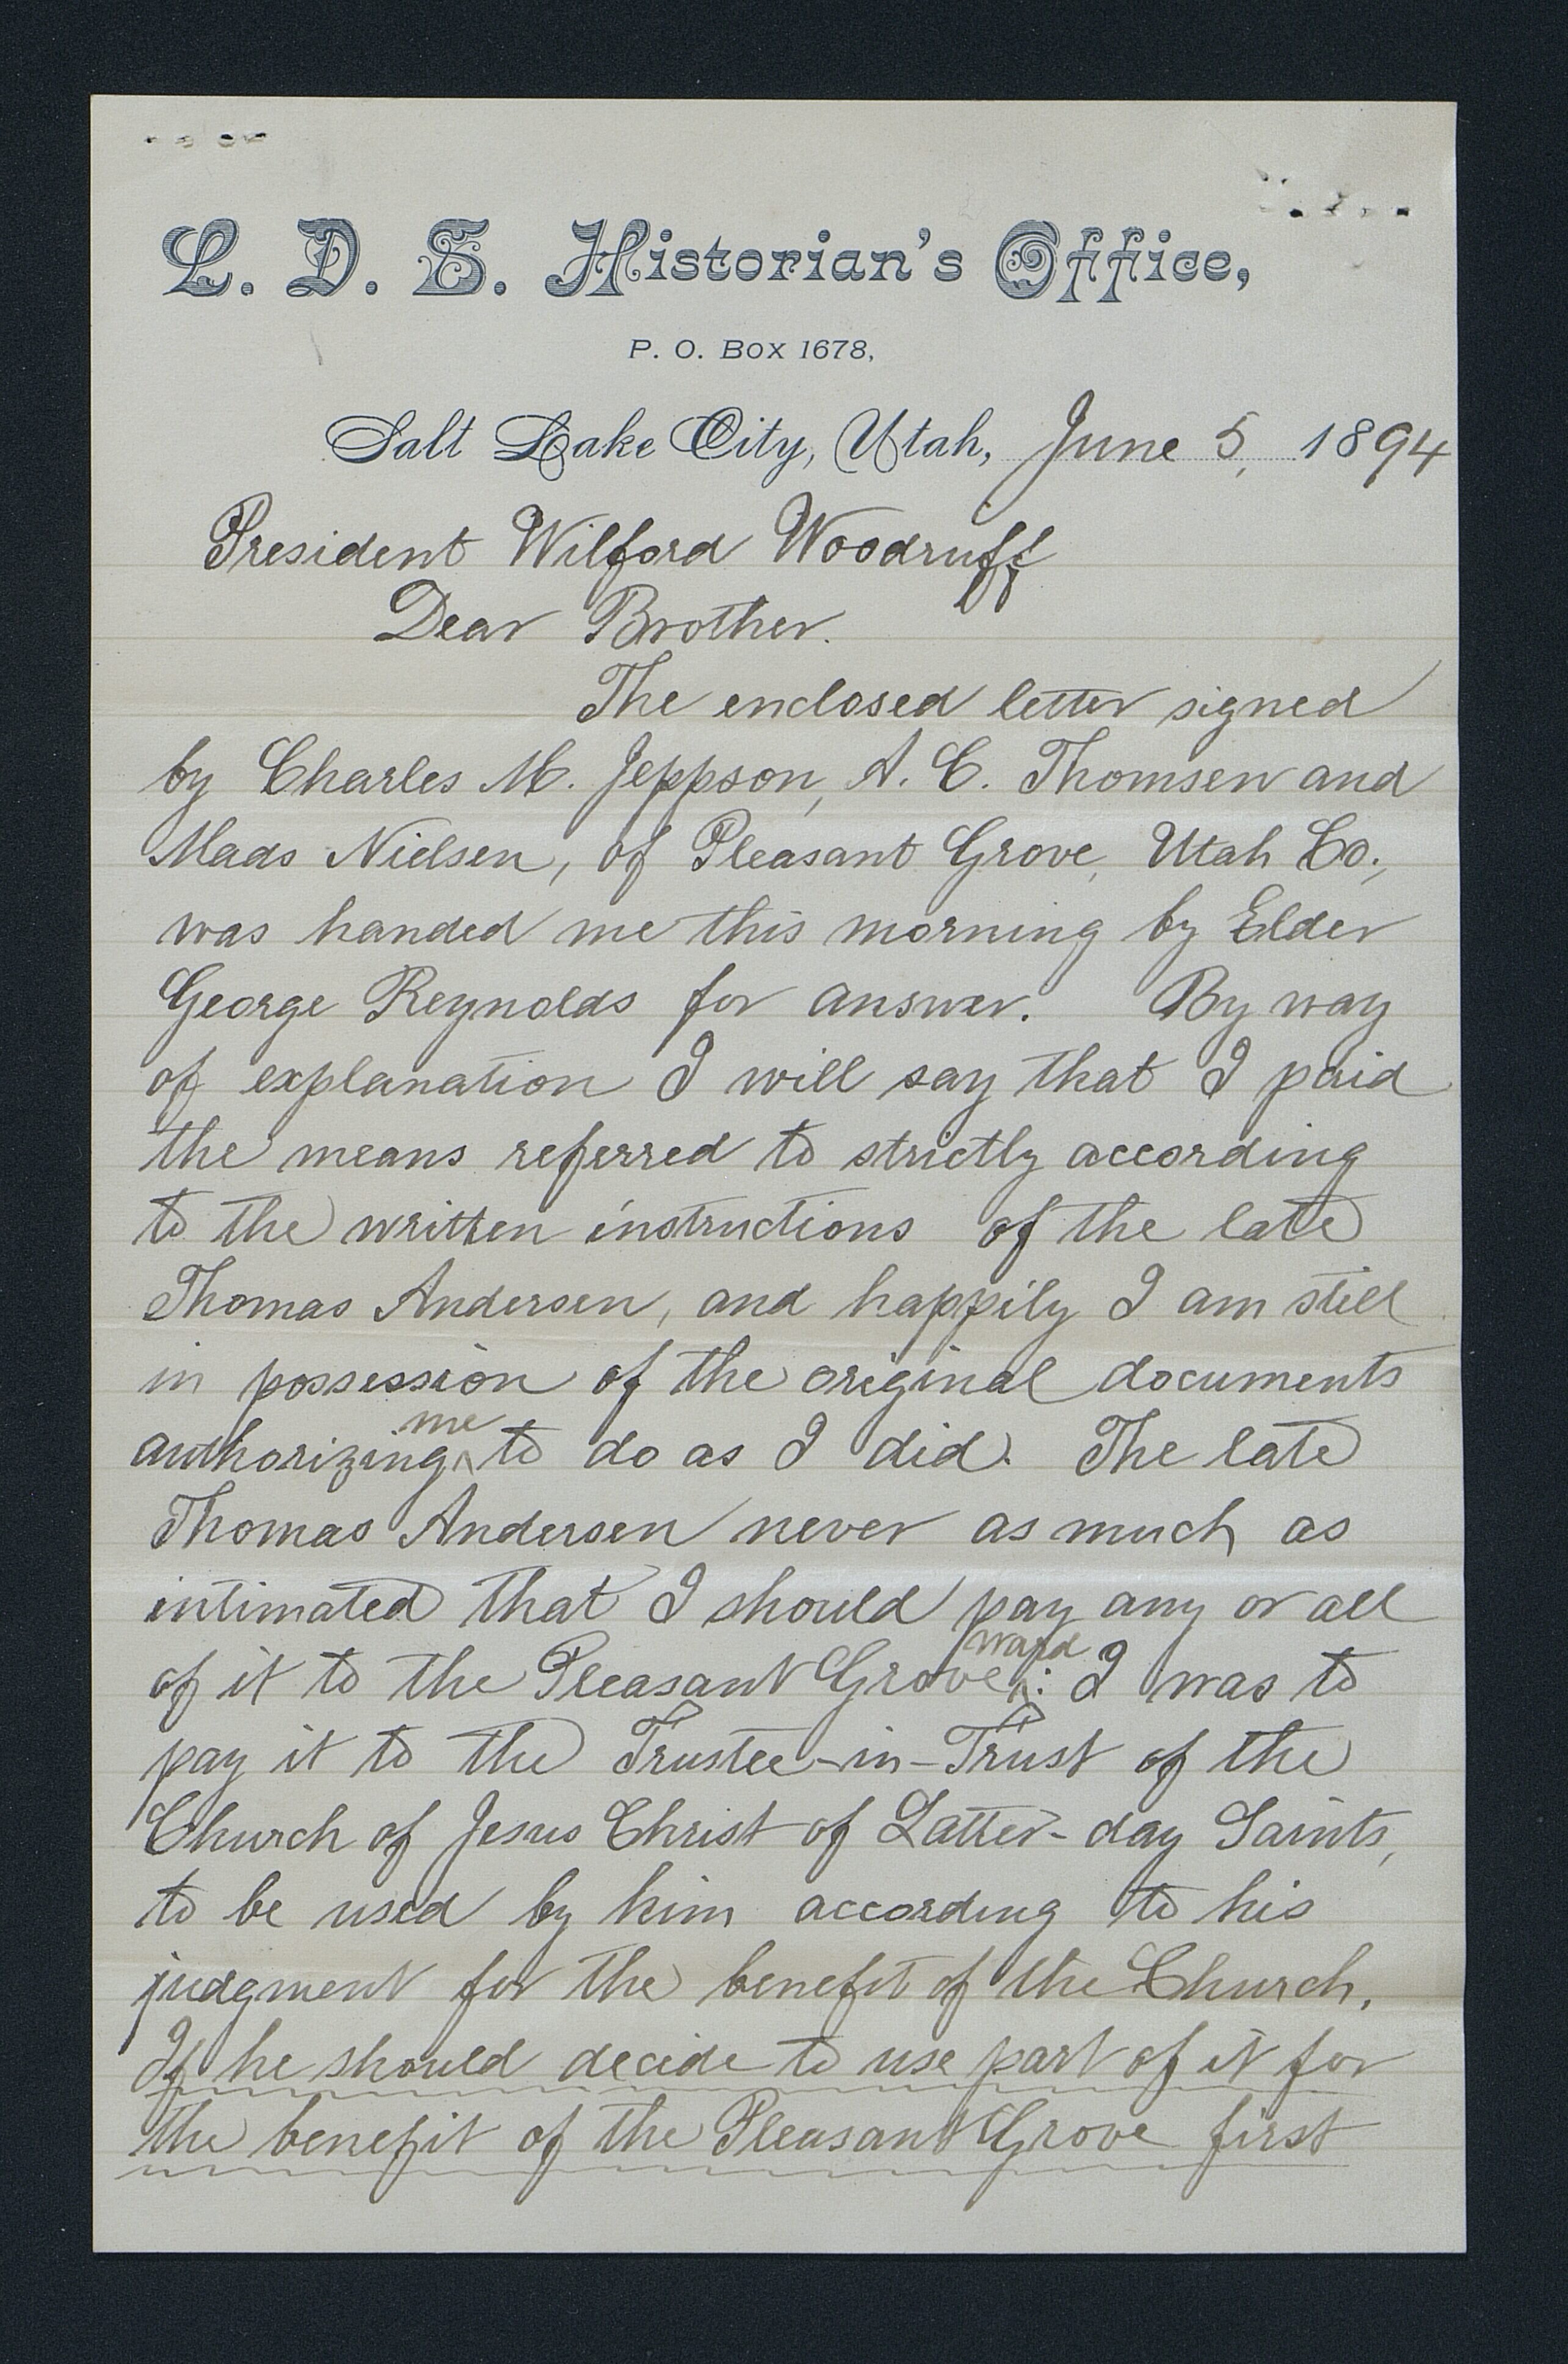 L. D. S. Historian's Office,
P. O. Box 1678,
Salt Lake City, Utah, June 5, 1894
President Wilford Woodruff
Dear Brother.
The enclosed letter signed
by Charles M. Jeppson, A. C. Thomsen and
Mads Nielsen, of Pleasant Grove, Utah Co.,
was handed me this morning by Elder
George Reynolds for answer. By way
of explanation I will say that I paid
the means referred to strictly according
to the written instructions of the late
Thomas Andersen, and happily I am still
in possession of the original documents
authorizing me to do as I did. The late
Thomas Andersen never as much as
intimated that I should pay any or all
of it to the Pleasant Grove ward: I was to
pay it to the Trustee-in-Trust of the
Church of Jesus Christ of Latter-day Saints,
to be used by him according to his
judgment for the benefit of the Church.
If he should decide to use part of it for
the benefit of the Pleasant Grove first